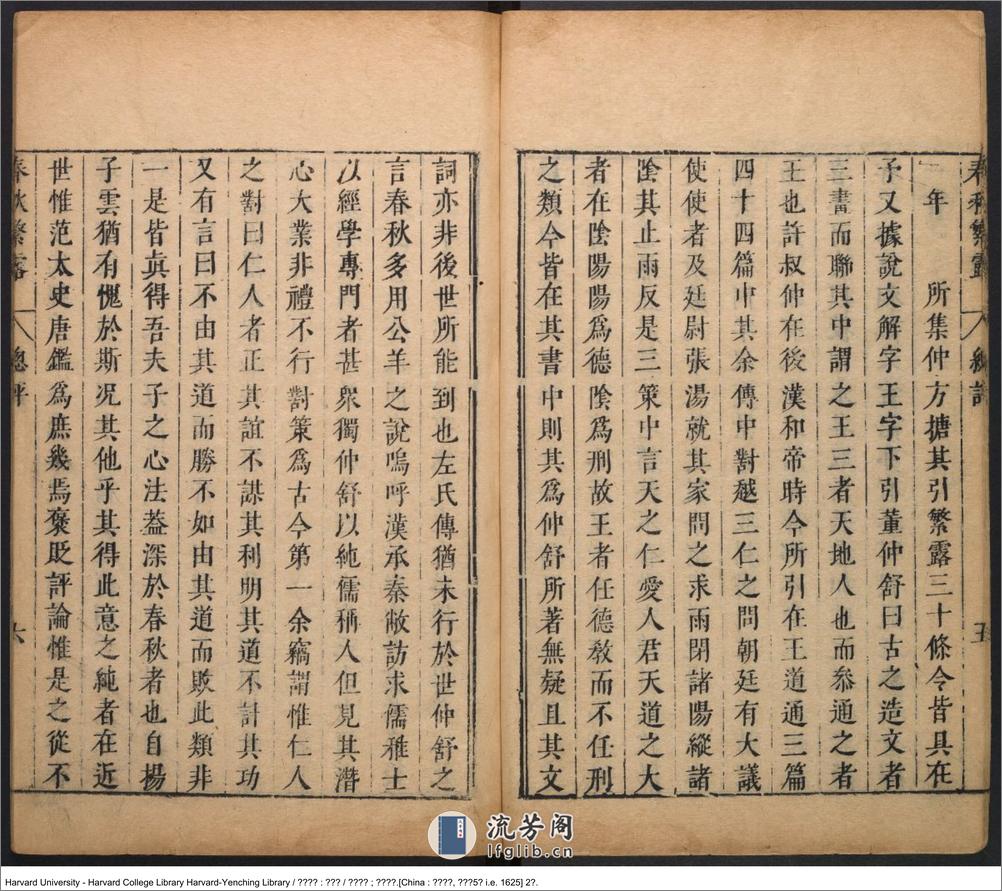 春秋繁露 總評 五
一年 所集仲方摭其引繁露三十條今皆具在
予又據說文解字王字下引董仲舒曰古之造文者
三畫而聯其中謂之王三者天地人也而叅通之者
王也許叔仲在後漢和帝時今所引在王道通三篇
四十四篇中其余傳中對越三仁之問朝廷有大議
使使者及廷尉張湯就其家問之求雨閉諸陽縱諸
陰其止雨反是三策中言天之仁愛人君天道之大
者在陰陽陽爲德陰爲刑故王者任德敎而不任刑
之類今皆在其書中則其爲仲舒所著無疑且其文
詞亦非後世所能到也左氏傳猶未行於世仲舒之
言春秋多用公羊之說嗚呼漢承秦敝訪求儒雅士
以經學專門者甚衆獨仲舒以純儒稱人但見其潛
心大業非禮不行對策爲古今第一余竊謂惟仁人
之對曰仁人者正其誼不謀其利明其道不計其功
又有言曰不由其道而勝不如由其道而敗此類非
一是皆眞得吾夫子之心法葢深於春秋者也自揚
子雲猶有愧於斯况其他乎其得此意之純者在近
世惟范太史唐鑑爲庶幾焉褒貶評論惟是之從不
春秋繁露 總評 六
流芳阁
lfglib.cn
Harvard University - Harvard College Library Harvard-Yenching Library / ???? : ??? / ???? ; ????.[China : ????, ???5? i.e. 1625] 2?.